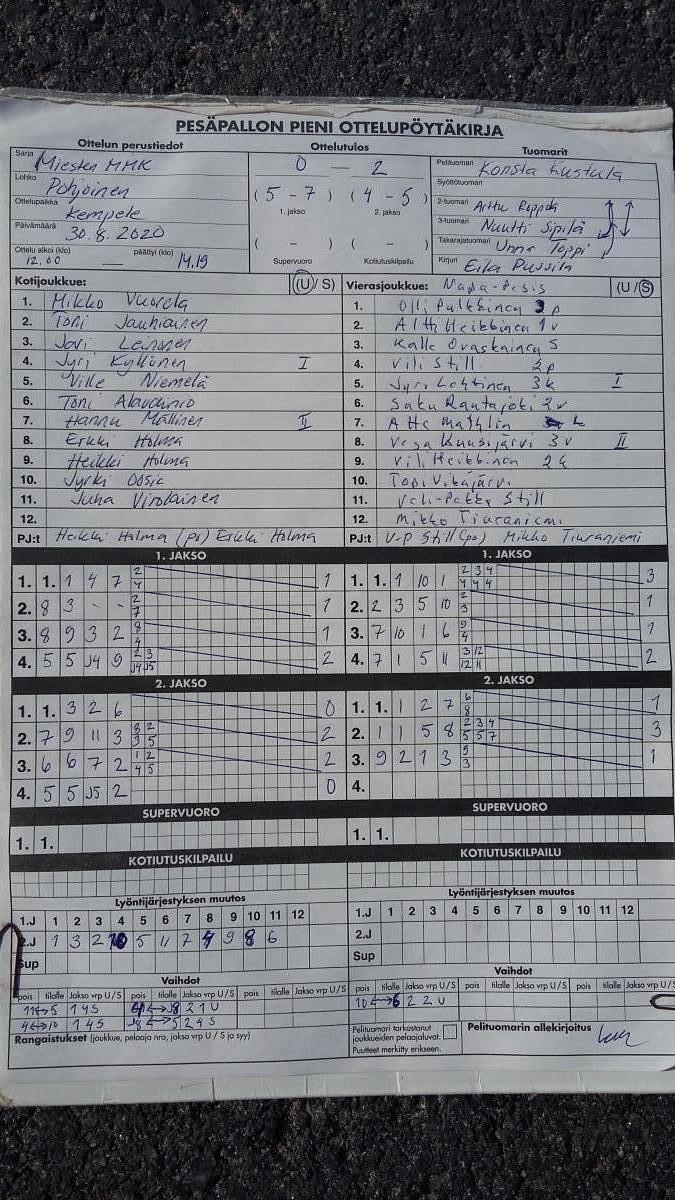 PESÄPALLON PIENI OTTELUPÖYTÄKIRJA
Ottelun perustiedot
Ottelutulos
Tuomarit
Sarja Miesten MMK
Lohko Pohjoinen
Ottelupaikka Kempele
Päivämäärä 30.8.2020
Ottelu alkoi (klo) 12.00 — päättyi (klo) 14.19
0 — 2
( 5 - 7 ) ( 4 - 5 )
1. jakso 2. jakso
( - ) ( - )
Supervuoro Kotiutuskilpailu
Pelituomari Konsta Kustula
Syöttötuomari
2-tuomari Arttu
3-tuomari Nuutti Sipilä
Takarajatuomari Unna Toppi
Kirjuri Eila
Kotijoukkue: (U/S)
1. Mikko Vuorela
2. Toni Jauhiainen
3. Jari Leinonen
4. Jyri Kyllönen I
5. Ville Niemelä
6. Toni
7. Hannu Mällinen II
8. Erkki Holma
9. Heikki Holma
10. Jyrki
11. Juha Virolainen
12.
PJ:t Heikki Holma (pj) Erkki Holma
Vierasjoukkue: Napa-Pesis (U/S)
1. Olli Pulkkinen 3p
2. Altti Heikkinen 1v
3. Kalle Ovaskainen S
4. Vili Still 2p
5. Jyri Lehtinen 3k I
6. Saku Rautajoki 2v
7. Atte
8. Vesa Kuusijärvi 3v II
9. Vili Heikkinen 2k
10. Topi Vikajärvi
11. Veli-Pekka Still
12. Mikko Tiuraniemi
PJ:t V-P Still (pj) Mikko Tiuraniemi
1. JAKSO
1. 1. 1 4 7 2 4 1
2. 8 3 - - 2 7 1
3. 8 9 3 2 8 4 1
4. 5 5 J4 9 2 3 J4 J5 2
1. JAKSO
1. 1. 1 10 1 2 3 4 4 4 4 3
2. 2 3 5 10 2 3 1
3. 7 10 1 6 9 4 1
4. 7 1 5 11 3 12 12 11 2
2. JAKSO
1. 1. 3 2 6 0
2. 7 9 11 3 8 2 3 5 2
3. 6 6 7 2 1 2 4 5 2
4. 5 5 J5 2 0
2. JAKSO
1. 1. 1 2 7 6 8 1
2. 1 1 5 8 2 3 4 5 5 7 3
3. 9 2 1 3 5 3 1
4.
SUPERVUORO
1. 1.
SUPERVUORO
1. 1.
KOTIUTUSKILPAILU
KOTIUTUSKILPAILU
Lyöntijärjestyksen muutos
1.J 1 2 3 4 5 6 7 8 9 10 11 12
2.J 1 3 2 10 5 11 7 4 9 8 6
Sup
Lyöntijärjestyksen muutos
1.J 1 2 3 4 5 6 7 8 9 10 11 12
2.J
Sup
Vaihdot
pois tilalle Jakso vrp U/S pois tilalle Jakso vrp U/S pois tilalle Jakso vrp U/S
11↔5 1 4 S ↔J8 2 1 U
4↔10 1 4 S J8↔5 2 4 S
Vaihdot
pois tilalle Jakso vrp U/S pois tilalle Jakso vrp U/S pois tilalle Jakso vrp U/S
10↔6 2 2 U
Rangaistukset (joukkue, pelaaja nro, jakso vrp U / S ja syy)
Pelituomari tarkastanut
joukkueiden pelaajaluvat.
Puutteet merkitty erikseen.
Pelituomarin allekirjoitus